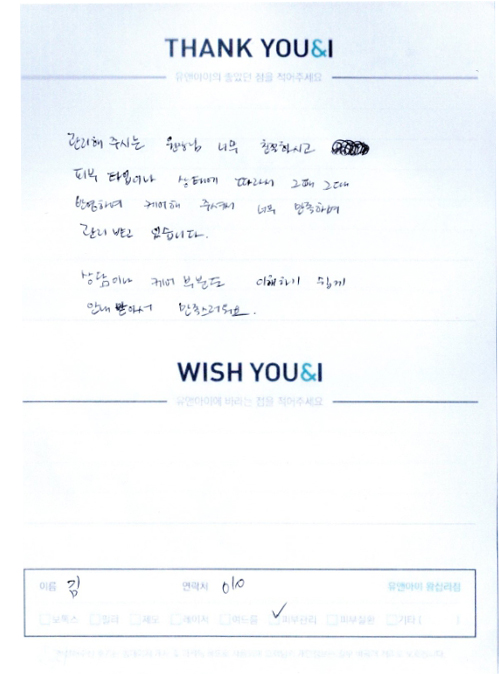 THANK YOU&I
유앤아이의 좋았던 점을 적어주세요
관리해 주시는 원장님 너무 친절하시고
피부 타입이나 상태에 따라서 그때 그때
반영하여 케어해 주셔서 너무 만족하며
관리 받고 있습니다.
상담이나 케어 부분도 이해하기 쉽게
안내 받아서 만족스러워요.
WISH YOU&I
유앤아이에 바라는 점을 적어주세요
이름 김 연락처 010 유앤아이 왕십리점
보톡스 필러 제모 레이저 여드름 피부관리 피부질환 기타 ( )